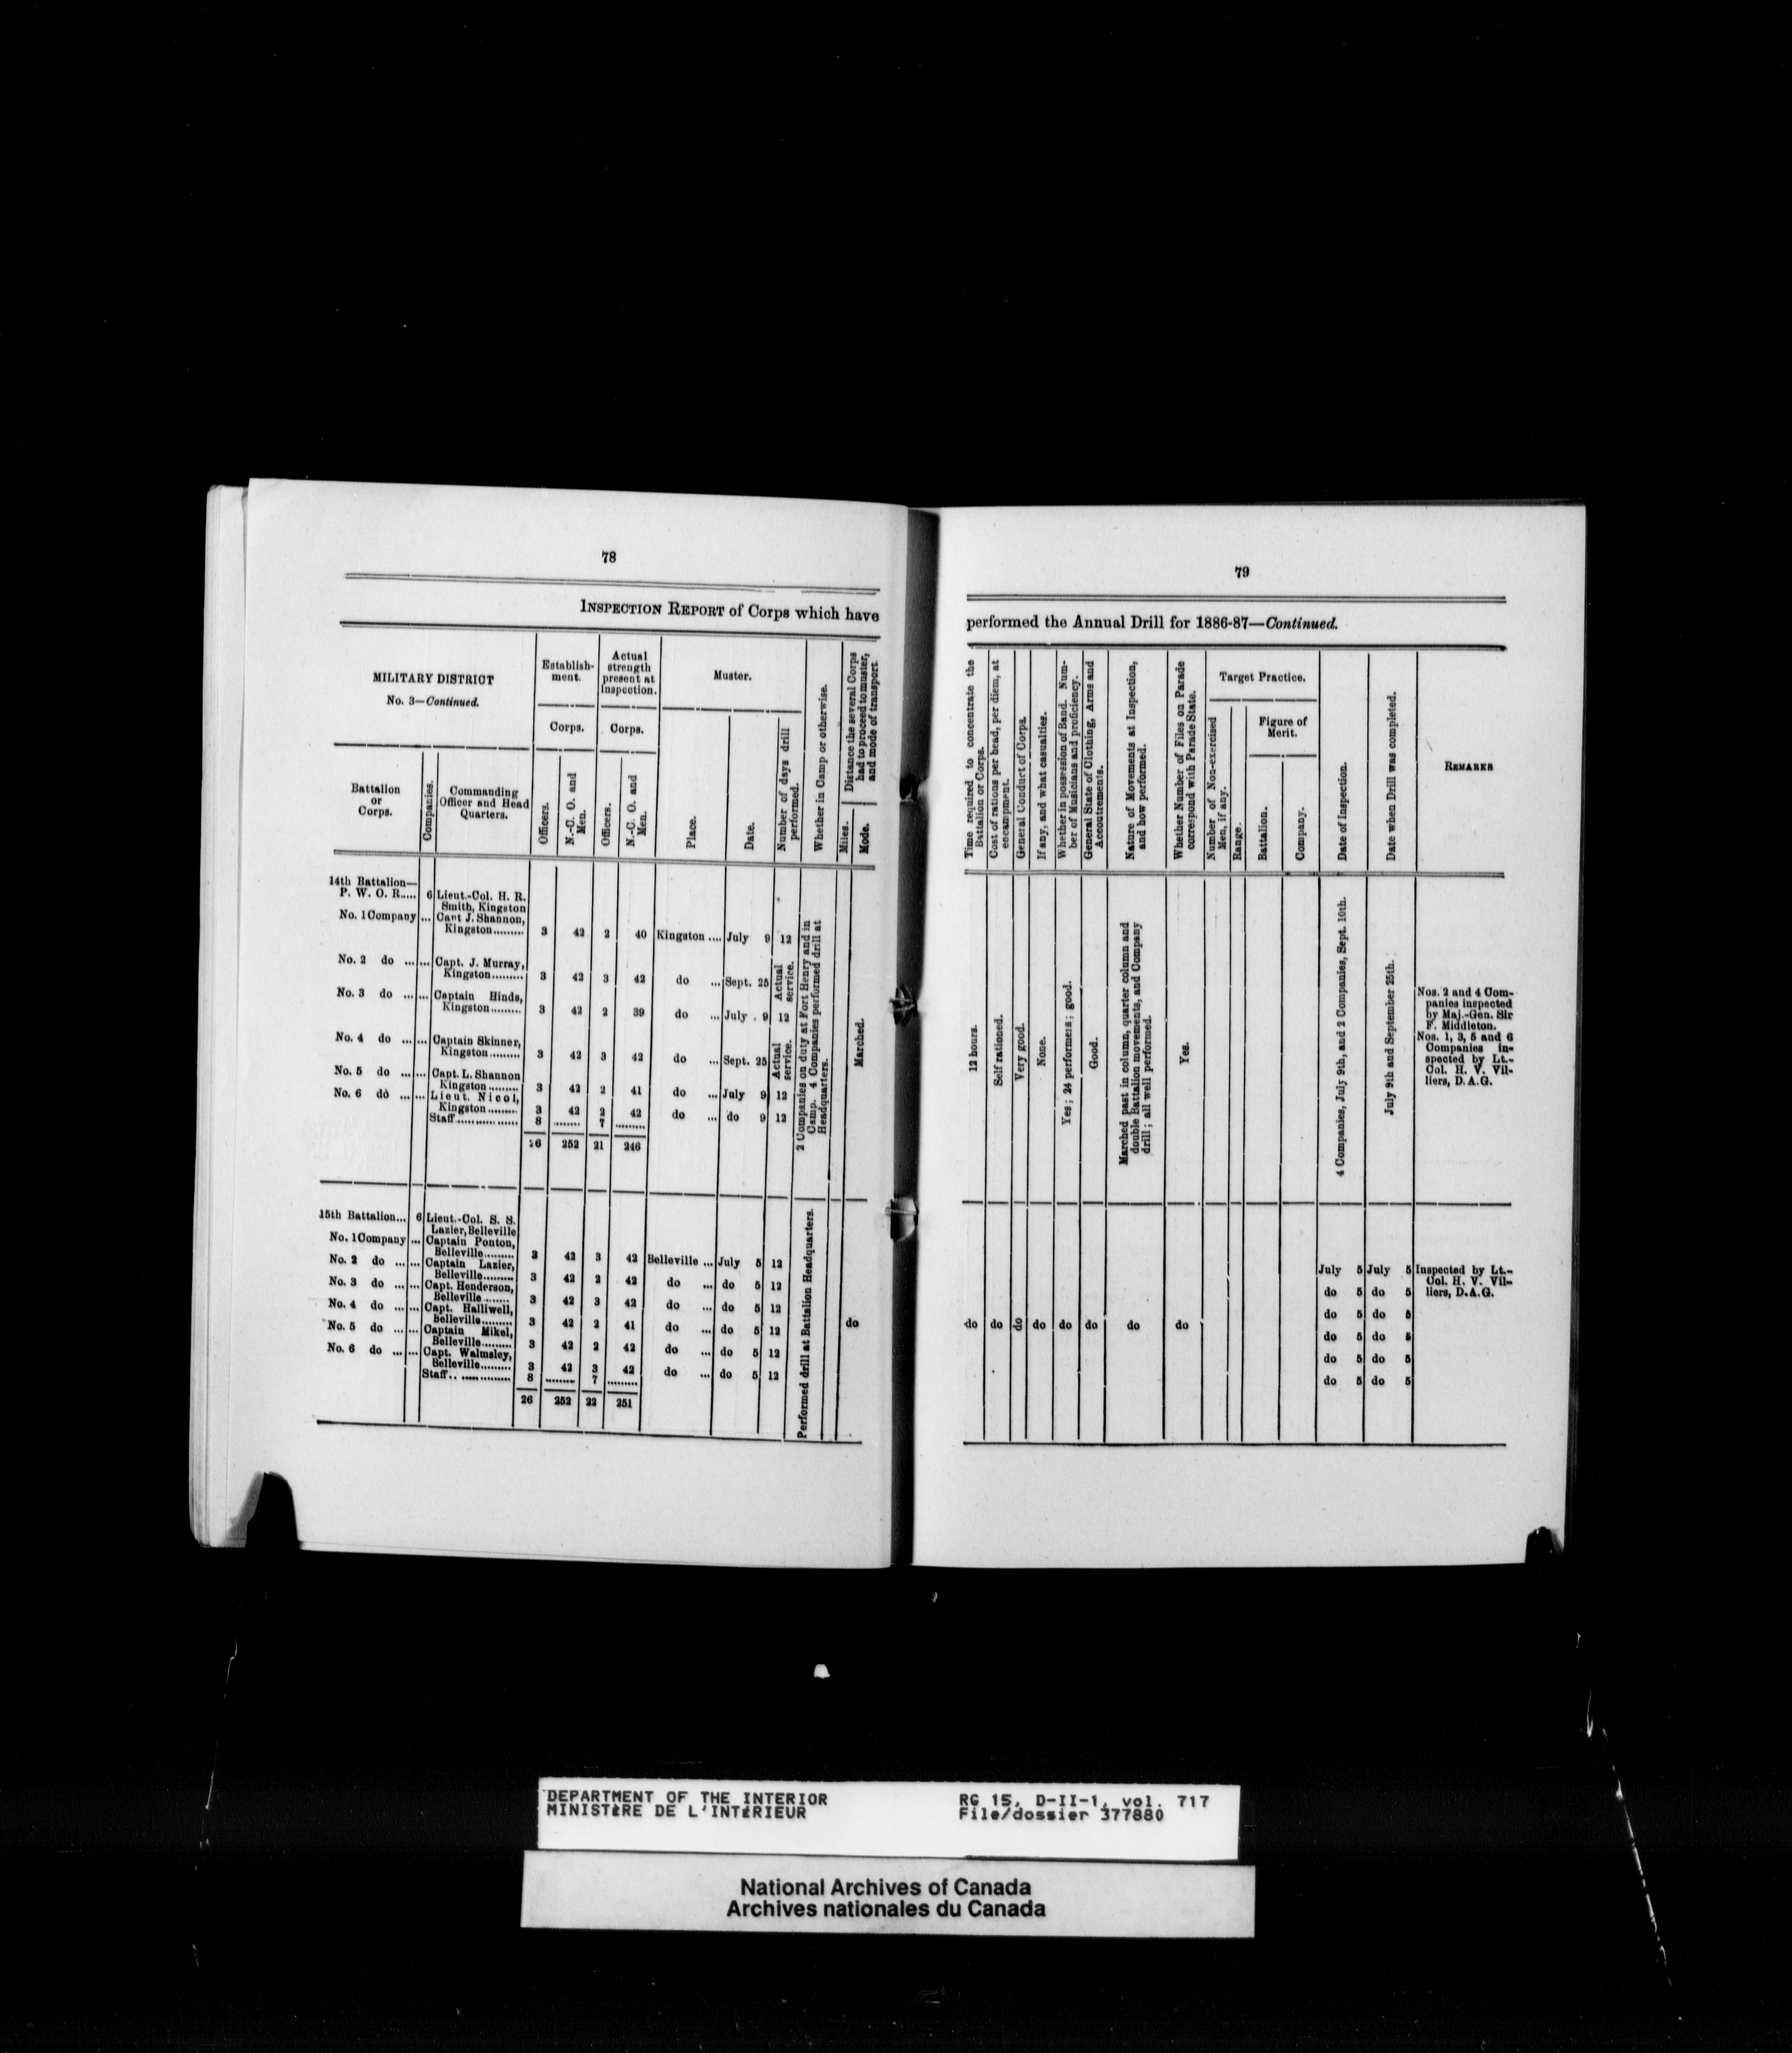 78
INSPECTION REPORT of Corps which have
MILITARY DISTRICT
No. 3—Continued.
Battalion
or
Corps.
Companies.
Commanding
Officer and Head
Quarters.
Establish-
ment.
Corps.
Officers.
N.-C. O. and
Men.
Actual
strength
present at
Inspection.
Corps.
Officers.
N.-C. O. and
Men.
Muster.
Place.
Date.
Number of days drill
performed.
Whether in Camp or otherwise.
Distance the several Corps
had to proceed to muster,
and mode of transport.
Miles.
Mode.
14th Battalion—
P. W. O. R..... 6 Lieut.-Col. H. R.
Smith, Kingston
No. 1 Company ... Capt J. Shannon,
Kingston......... 3 42 2 40 Kingston .... July 9 12
No. 2 do ... ... Capt. J. Murray,
Kingston......... 3 42 3 42 do ... Sept. 25 Actual
service.
No. 3 do ... ... Captain Hinds,
Kingston......... 3 42 2 39 do ... July 9 12
No. 4 do ... ... Captain Skinner,
Kingston......... 3 42 3 42 do ... Sept. 25 Actual
service.
No. 5 do ... ... Capt. L. Shannon
Kingston ......... 3 42 2 41 do ... July 9 12
No. 6 do ... ... Lieut. Nicol,
Kingston......... 3 42 2 42 do ... do 9 12
Staff.................. 8 ........ 7 .........
26 252 21 246
2 Companies on duty at Fort Henry and in
Camp. 4 Companies performed drill at
Headquarters.
Marched.
15th Battalion... 6 Lieut.-Col. S. S.
Lazier, Belleville
No. 1 Company ... Captain Ponton,
Belleville......... 3 42 3 42 Belleville ... July 5 12
No. 2 do ... ... Captain Lazier,
Belleville......... 3 42 2 42 do ... do 5 12
No. 3 do ... ... Capt. Henderson,
Belleville ........ 3 42 3 42 do ... do 5 12
No. 4 do ... ... Capt. Halliwell,
Belleville......... 3 42 2 41 do ... do 5 12
No. 5 do ... ... Captain Mikel,
Belleville......... 3 42 2 42 do ... do 5 12
No. 6 do ... ... Capt. Walmsley,
Belleville......... 3 42 3 42 do ... do 5 12
Staff.. ............... 8 ......... 7 .........
26 252 22 251
Performed drill at Battalion Headquarters.
do
79
performed the Annual Drill for 1886-87—Continued.
Time required to concentrate the
Battalion or Corps.
Cost of rations per head, per diem, at
encampment.
General Conduct of Corps.
If any, and what casualties.
Whether in possession of Band. Num-
ber of Musicians and proficiency.
General State of Clothing, Arms and
Accoutrements.
Nature of Movements at Inspection,
and how performed.
Whether Number of Files on Parade
correspond with Parade State.
Target Practice.
Number of Non-exercised
Men, if any.
Range.
Figure of
Merit.
Battalion.
Company.
Date of Inspection.
Date when Drill was completed.
REMARKS
12 hours.
Self rationed.
Very good.
None.
Yes; 24 performers; good.
Good.
Marched past in column, quarter column and
double Battalion movements, and Company
drill; all well performed.
Yes.
4 Companies, July 9th, and 2 Companies, Sept. 10th.
July 9th and September 25th.
Nos. 2 and 4 Com-
panies inspected
by Maj.-Gen. Sir
F. Middleton.
Nos. 1, 3, 5 and 6
Companies in-
spected by Lt.-
Col. H. V. Vil-
liers, D.A.G.
do do do do do do do do
July 5 July 5 Inspected by Lt.-
Col. H. V. Vil-
do 5 do 5 liers, D.A.G.
do 5 do 5
do 5 do 5
do 5 do 5
do 5 do 5
DEPARTMENT OF THE INTERIOR
MINISTÈRE DE L'INTÉRIEUR
RG 15, D-II-1, vol. 717
File/dossier 377880
National Archives of Canada
Archives nationales du Canada